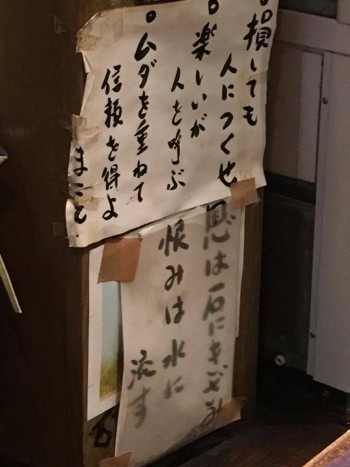 損しても
人につくせ
楽しいが
人を呼ぶ
ムダを重ねて
信頼を得よ
まこと
恩は石にきざみ
恨みは水に
流す